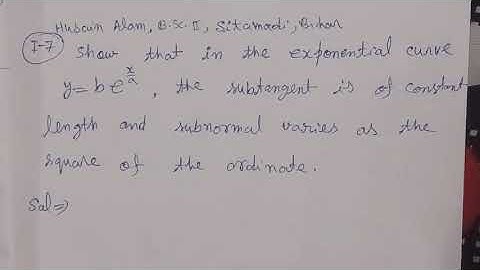 Hubain Alam, B.Sc. II, Sitamadi, Bihar
I-7 Show that in the exponential curve
y = b e^{x/a}, the subtangent is of constant
length and subnormal varies as the
square of the ordinate.
Sol⇒